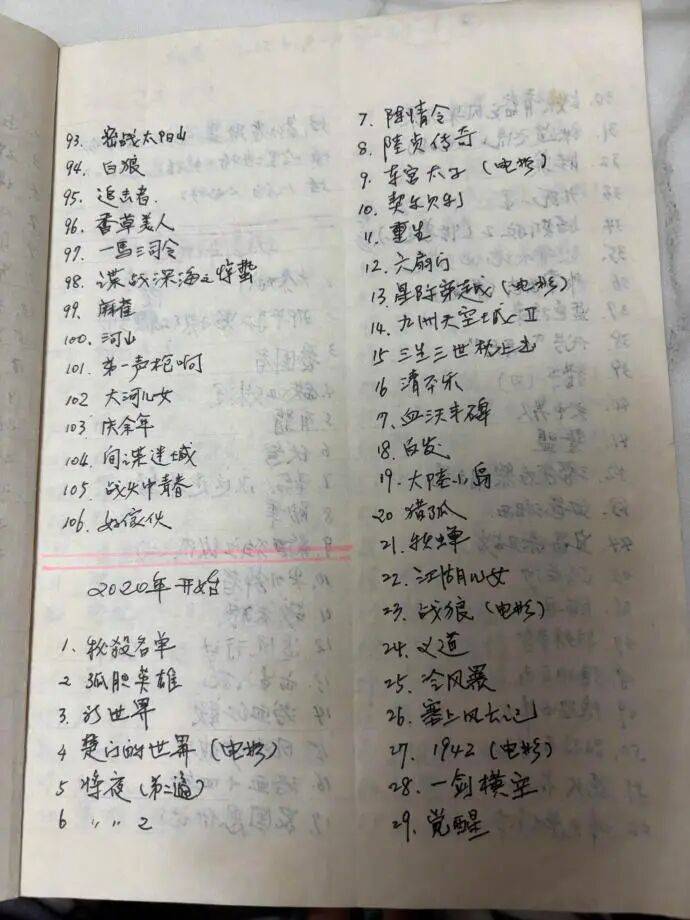 93. 密战太阳山
94. 白狼
95. 追击者.
96. 香草美人
97. 一馬三司令
98. 谍战深海之惊蛰
99. 麻雀
100. 河山
101. 第一声枪啊
102 大河儿女
103 庆余年
104. 间谍迷城
105. 战火中青春
106. 好傢伙
2020年开始
1. 秘殺名单
2 孤胆英雄
3. 新世界
4 楚门的世界 (电影)
5 将夜 (第二遍)
6 〃 〃 2
7. 陈情令
8 陸贞传奇
9. 东宫太子 (电影)
10. 契尔贝利
11. 重生
12. 六扇门
13. 星际穿越 (电影)
14. 九洲天空城 II
15 三生三世枕上书
16 清平乐
17. 血沃丰碑
18. 白发
19. 大陸小島
20 猎狐
21. 秋蝉
22. 江湖儿女
23. 战狼 (电影)
24. 义道
25. 冷风暴
26. 塞上风云记
27. 1942 (电影)
28. 一剑横空
29. 觉醒